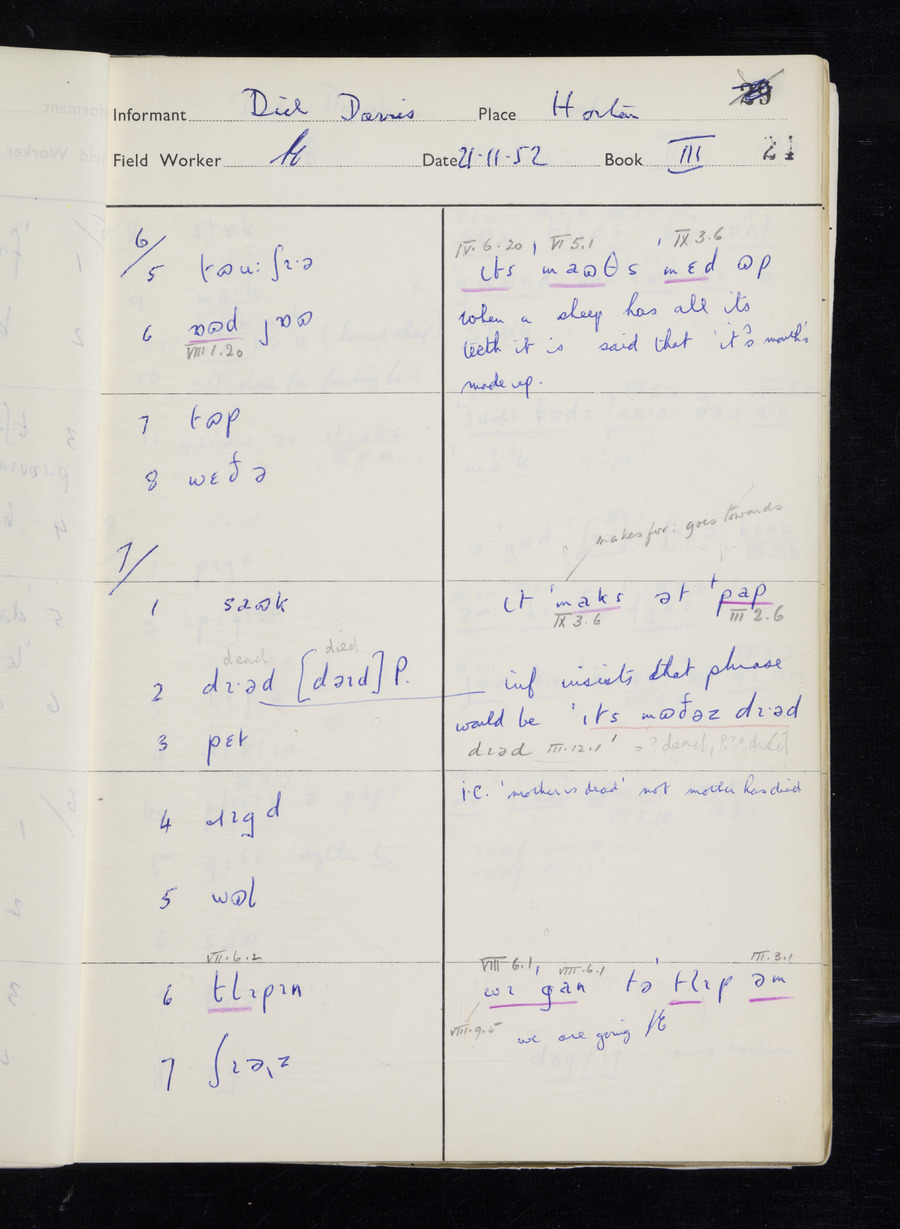 Informant Dick Davies Place Horton 29
Field Worker Date 21·11·52 Book III 21
6/
5 tɷu: ʃɪ·ə
6 aɷd jaɷ
VIII 1.20
IV. 6. 20, VI 5.1, IX 3.6
ɪts maɷθs mɛd ɷp
when a sheep has all its
teeth it is said that 'it's mouth's
made up.
7 tɷp
8 wɛðə
7/
makes for: goes towards
1 saɷk
ɪt maks ət pap
IX 3.6 III 2.6
dead died
2 dɪ·əd [dəɪd] P.
inf insists that phrase
would be 'ɪts mɷðəz dɪ·əd
3 pɛt
dɪəd III.12.1' = ? dead,
4 ɪɪgd
i.e. 'mother is dead' not mother has died
5 wɷl
VII. 6. 2
6 tlɪpɪn
VIII 6.1, VIII. 6.1 III. 3.1
wɪ gan tə tlɪp əm
VIII. 9. 5
we are going
7 ʃɪəz